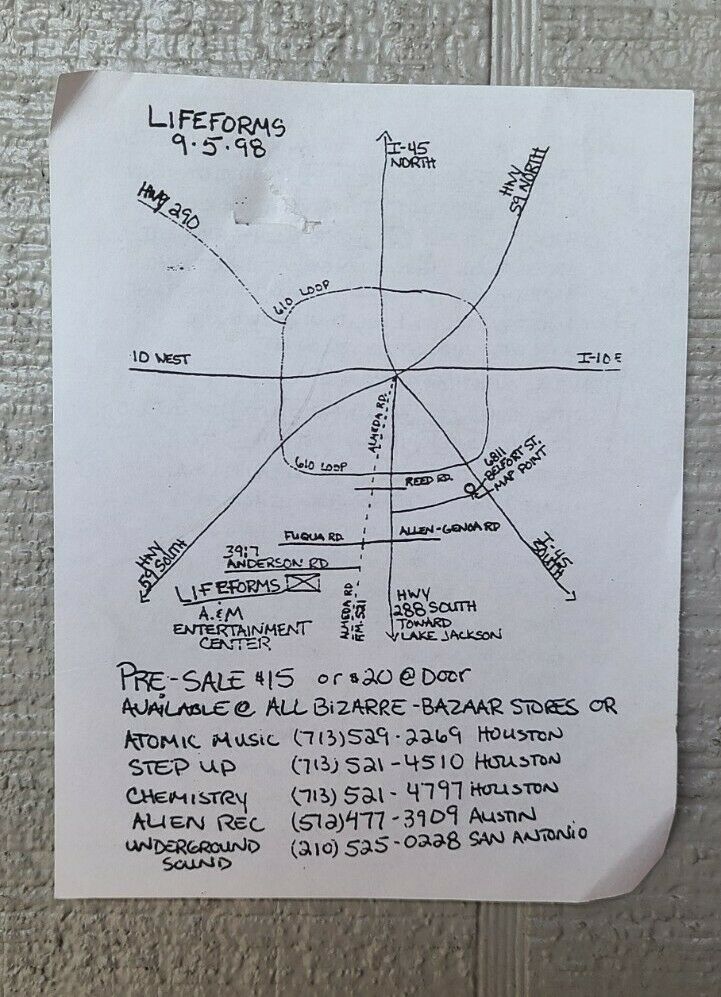 LIFEFORMS
9.5.98
I-45
NORTH
HWY
59 NORTH
HWY 290
610 LOOP
10 WEST
I-10 E
ALMEDA RD.
610 LOOP
REED RD.
6811
BELFORT ST.
MAP POINT
FUQUA RD.
ALLEN-GENOA RD
HWY
59 SOUTH
3917
ANDERSON RD
I-45
SOUTH
LIFEFORMS
A&M
ENTERTAINMENT
CENTER
ALMEDA RD
FM-521
HWY
288 SOUTH
TOWARD
LAKE JACKSON
PRE-SALE $15 or $20 @ Door
AVAILABLE @ ALL BIZARRE-BAZAAR STORES OR
ATOMIC MUSIC (713)529-2269 HOUSTON
STEP UP (713) 521-4510 HOUSTON
CHEMISTRY (713) 521-4797 HOUSTON
ALIEN REC (512)477-3909 AUSTIN
UNDERGROUND (210) 525-0228 SAN ANTONIO
SOUND